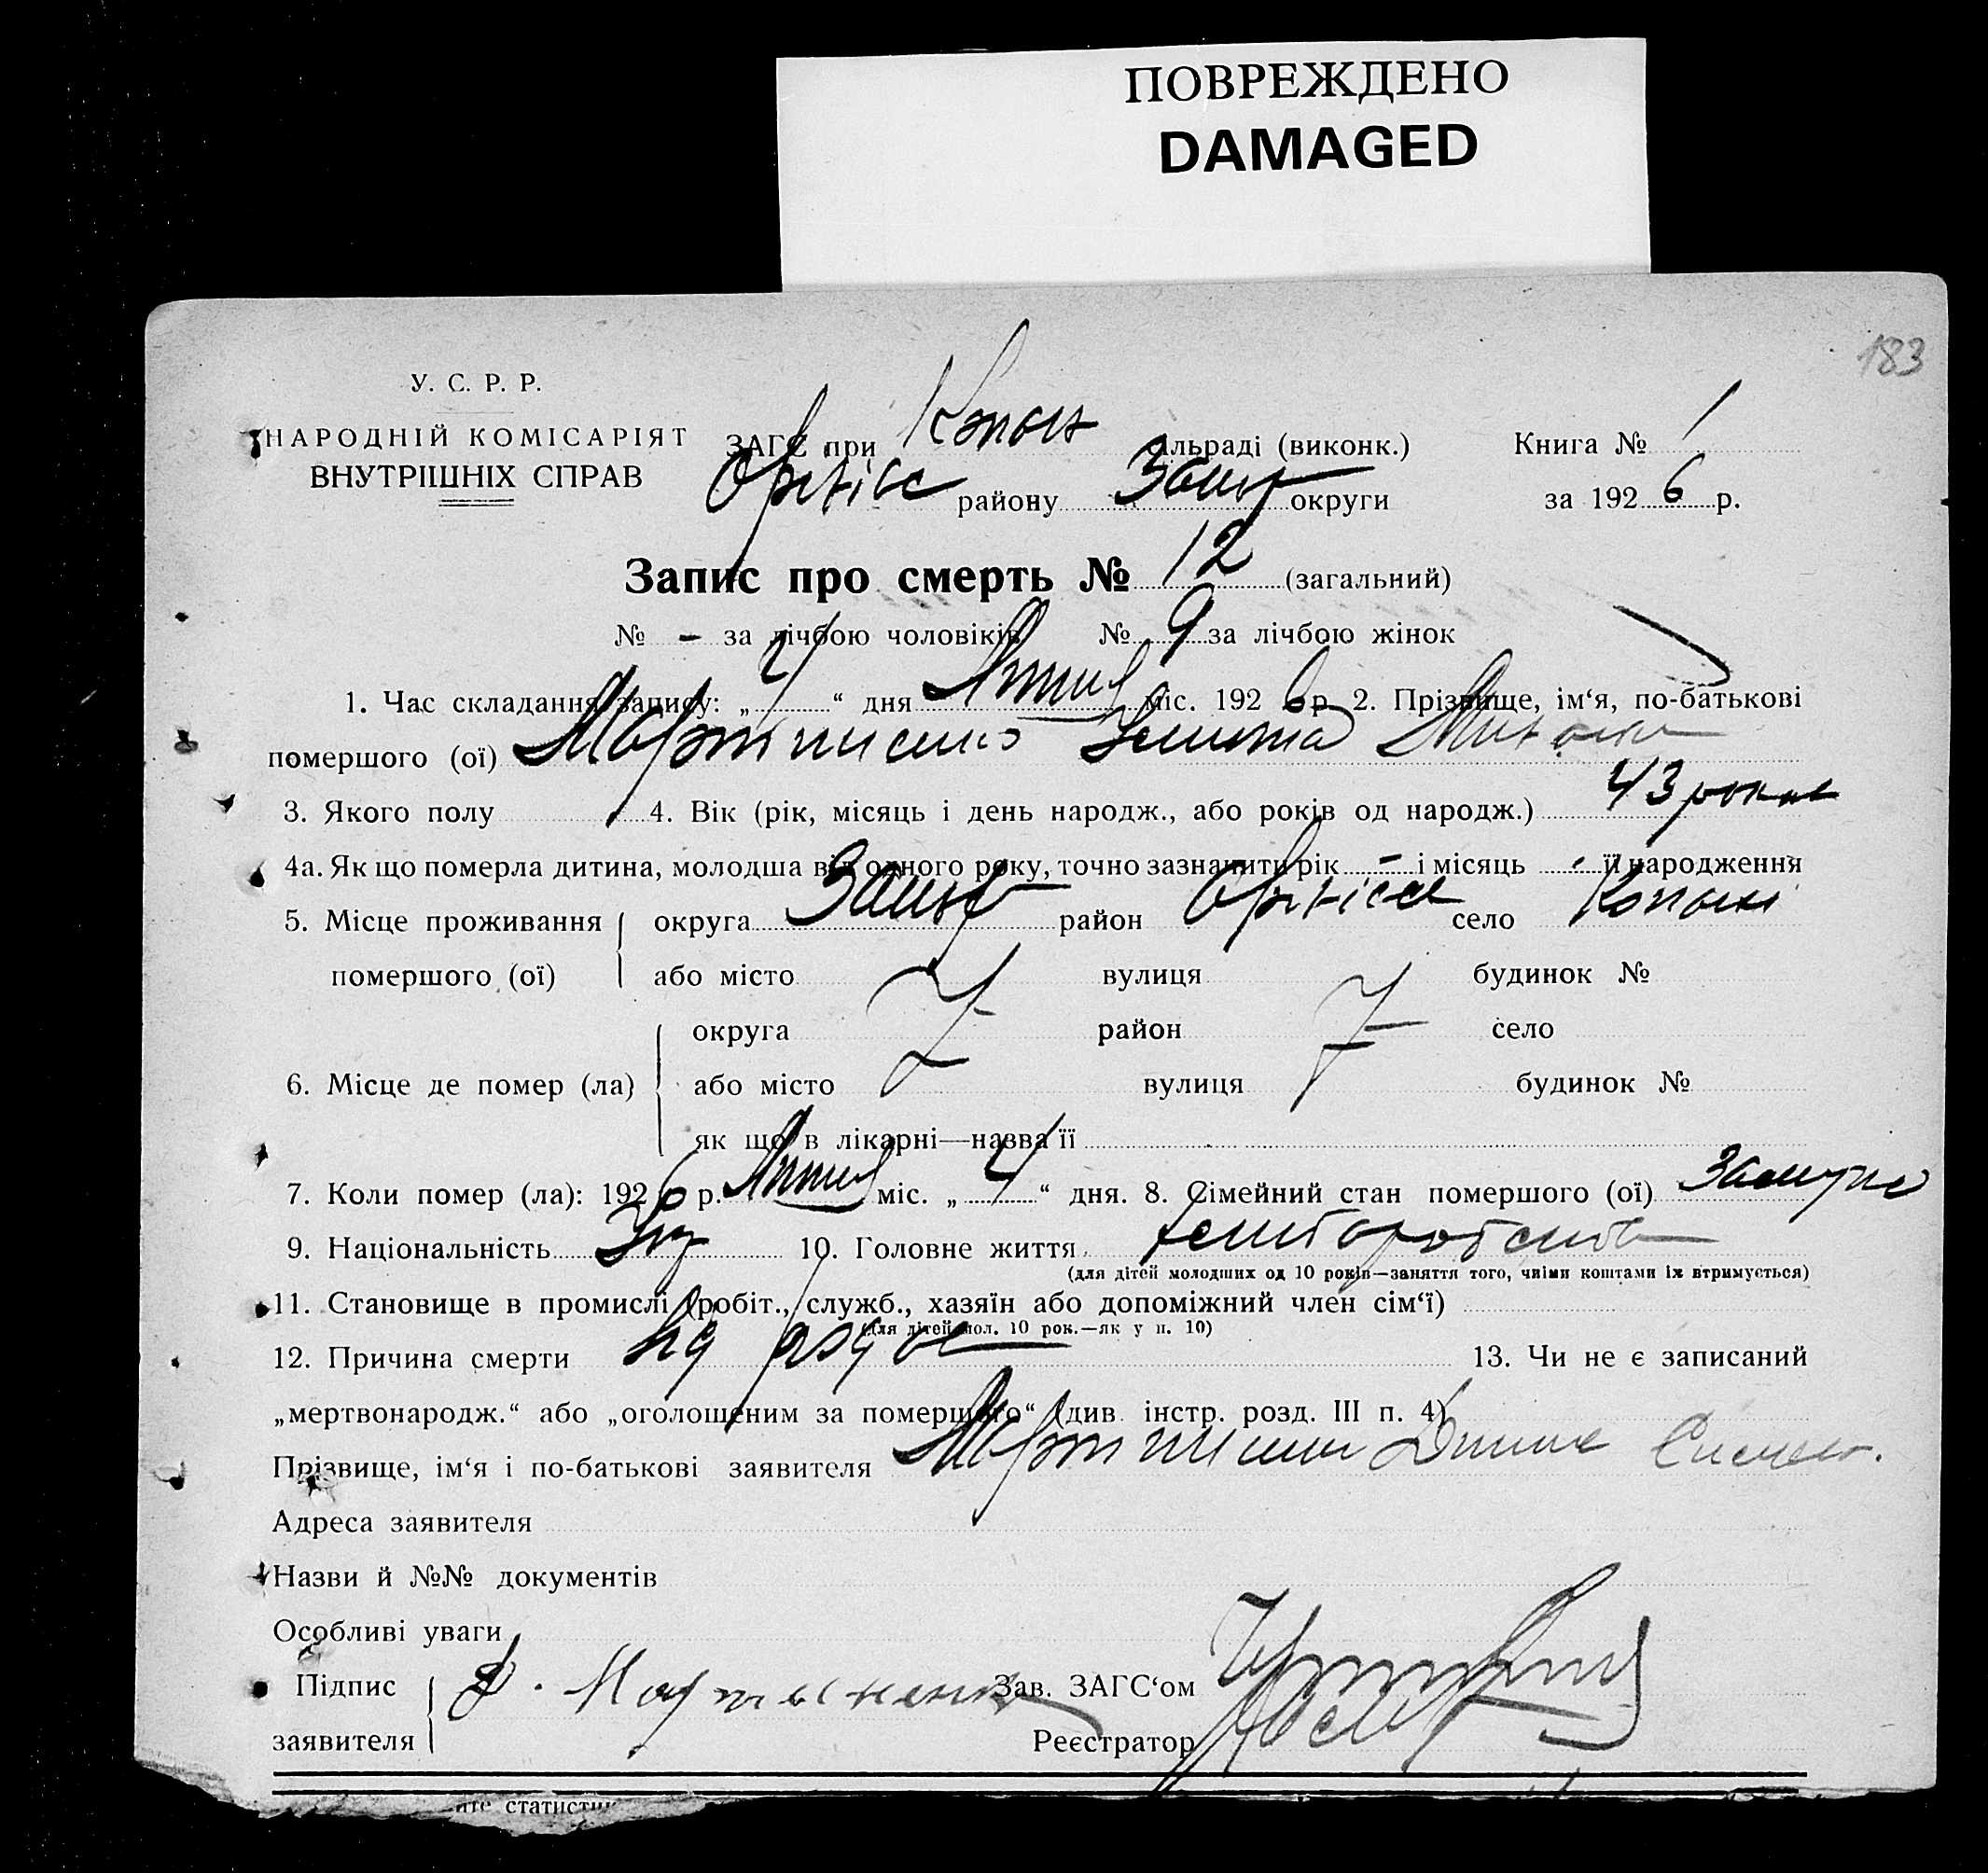 ПОВРЕЖДЕНО
DAMAGED
183
У. С. Р. Р.
НАРОДНІЙ КОМІСАРІЯТ
ВНУТРІШНІХ СПРАВ
ЗАГС при Копан сільраді (виконк.)
Оріхівс району Запор округи
Книга № 1
за 1926 р.
Запис про смерть № 12 (загальний)
№ - за лічбою чоловіків № 9 за лічбою жінок
1. Час складання запису: „4“ дня міс. 1926 р. 2. Прізвище, ім‘я, по-батькові
помершого (ої) Мартиненко
3. Якого полу 4. Вік (рік, місяць і день народж., або років од народж.) 43 роки
4а. Як що померла дитина, молодша від одного року, точно зазначити рік - і місяць - її народження
5. Місце проживання помершого (ої) округа Запор район Оріхівс село Копані
або місто вулиця будинок №
6. Місце де помер (ла) округа район село
або місто вулиця будинок №
як що в лікарні—назва її
7. Коли помер (ла): 1926 р. міс. „4“ дня. 8. Сімейний стан помершого (ої) Замужня
9. Національність Укр 10. Головне життя хліборобство
(для дітей молодших од 10 років—заняття того, чиїми коштами їх втримується)
11. Становище в промислі (робіт., служб., хазяїн або допоміжний член сім‘ї)
(для дітей мол. 10 рок.—як у п. 10)
12. Причина смерти 13. Чи не є записаний
„мертвонародж.“ або „оголошеним за помершого“ (див. інстр. розд. III п. 4)
Прізвище, ім‘я і по-батькові заявителя Мартиненко
Адреса заявителя
Назви й №№ документів
Особливі уваги
Підпис заявителя Мартыненко
Зав. ЗАГС‘ом
Реєстратор